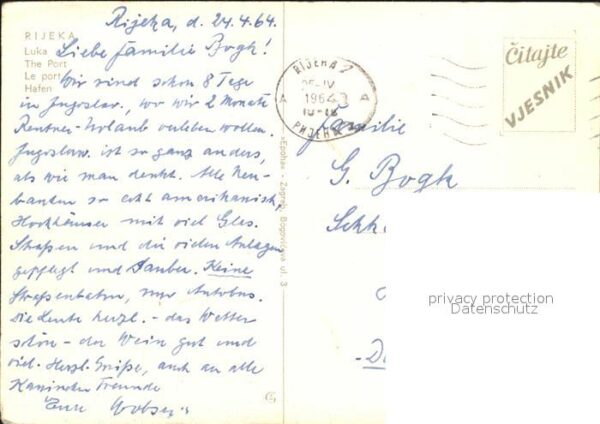 Rijeka, d. 24.4.64.
RIJEKA
Luka
The Port
Le port
Hafen
Liebe Familie Bogk!
Wir sind schon 8 Tage
in Jugoslav., wo wir 2 Monate
Rentner-Urlaub verleben wollen.
Jugoslaw. ist so ganz anders,
als wie man denkt. Alle Neu-
bauten so echt amerikanisch,
Hochhäuser mit viel Glas.
Straßen und die vielen Anlagen
gepflegt und sauber. Keine
Straßenbahn, nur Autobus.
Die Leute herzl. - das Wetter
schön - der Wein gut und
viel. Herzl. Grüße, auch an alle
Freunde
Eure
"Epoha" - Zagreb, Bogovićeva ul. 3
RIJEKA 2
25-IV
1964
A A
Čitajte
VJESNIK
Familie
G. Bogk
privacy protection
Datenschutz